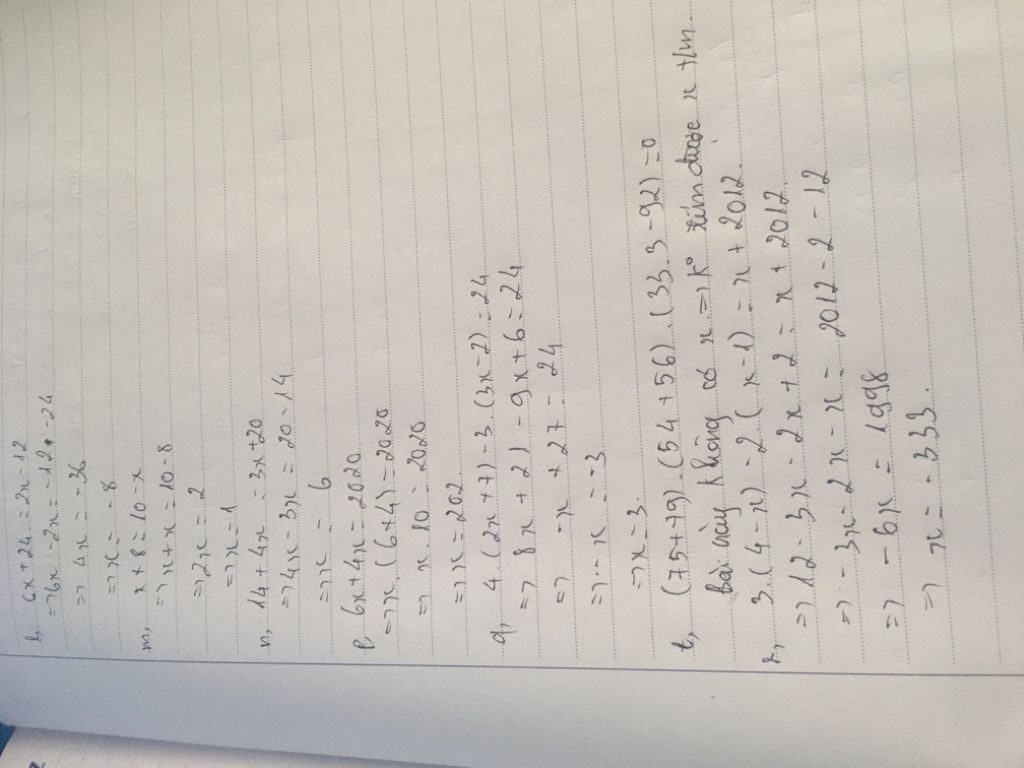 l, 6x + 24 = 2x - 12
=> 6x - 2x = -12 - 24
=> 4x = -36
=> x = -8
m, x + 8 = 10 - x
=> x + x = 10 - 8
=> 2x = 2
=> x = 1
n, 14 + 4x = 3x + 20
=> 4x - 3x = 20 - 14
=> x = 6
p, 6x + 4x = 2020
=> x. (6+4) = 2020
=> x. 10 = 2020
=> x = 202
q, 4. (2x + 7) - 3. (3x - 2) = 24
=> 8x + 21 - 9x + 6 = 24
=> -x + 27 = 24
=> -x = -3
=> x = 3.
t, (75 + + 9). (54 + 56). (33. 3 - 92) = 0
Bài này không có x. => k° tính được x + lm.
r, 3. (4 - x) - 2. (x - 1) = x + 2012.
=> 12 - 3x - 2x + 2 = x + 2012.
=> -3x - 2x - x = 2012 - 2 - 12
=> -6x = 1998
=> x = -333.